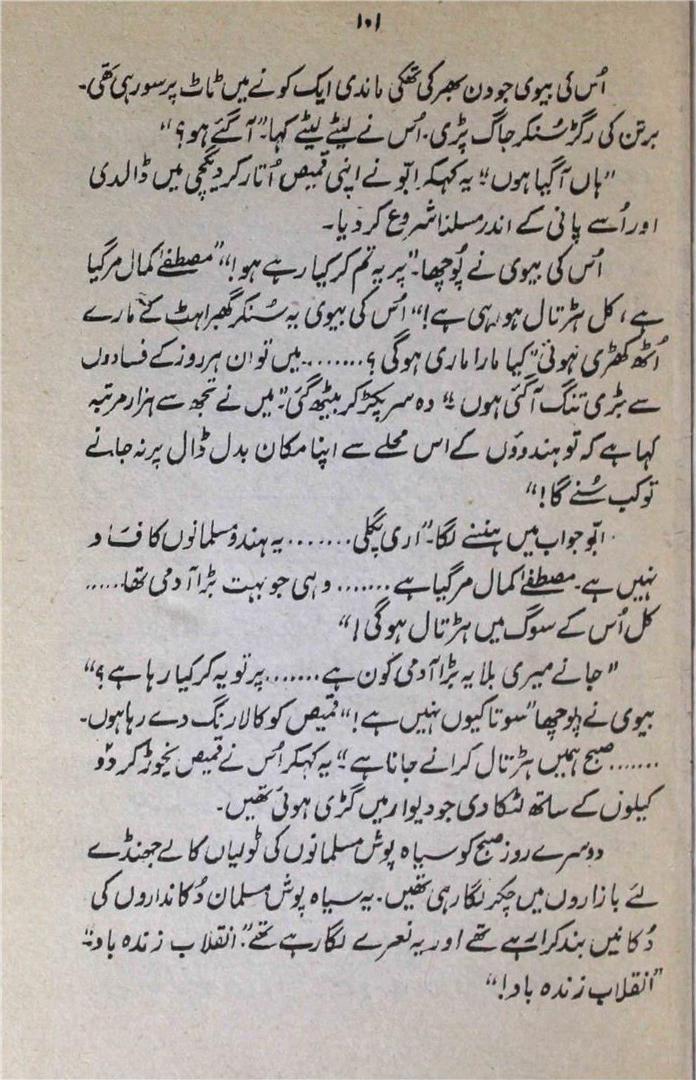 ۱۰۱
اُس کی بیوی جو دن بھر کی تھکی ماندی ایک کونے میں ٹاٹ پر سو رہی تھی۔
برتن کی رگڑ سُنکر جاگ پڑی۔ اُس نے لیٹے لیٹے کہا۔ "آ گئے ہو؟"
"ہاں آ گیا ہوں"۔ یہ کہکر ابّو نے اپنی قمیص اُتار کر دیگچی میں ڈالدی
اور اُسے پانی کے اندر مسلنا شروع کر دیا۔
اُس کی بیوی نے پوُچھا۔ "پر یہ تم کر کیا رہے ہو!" "مصطفےٰ کمال مر گیا
ہے، کل ہڑتال ہو رہی ہے!" اُس کی بیوی یہ سُنکر گھبراہٹ کے مارے
اُٹھ کھڑی ہوئی "کیا مارا ماری ہوگی؟ ....... میں تو ان ہر روز کے فسادوں
سے بڑی تنگ آ گئی ہوں"۔ وہ سر پکڑ کر بیٹھ گئی۔ "میں نے تجھ سے ہزار مرتبہ
کہا ہے کہ تو ہندوؤں کے اس محلے سے اپنا مکان بدل ڈال پر نہ جانے
تو کب سُنے گا!"
ابّو جواب میں ہنسنے لگا۔ "اری پگلی ....... یہ ہندو مسلمانوں کا فساد
نہیں ہے۔ مصطفےٰ کمال مر گیا ہے ....... وہی جو بہت بڑا آدمی تھا .....
کل اُس کے سوگ میں ہڑتال ہوگی!"
"جانے میری بلا یہ بڑا آدمی کون ہے ....... پر تو یہ کر کیا رہا ہے؟"
بیوی نے پوچھا "سوتا کیوں نہیں ہے!" "قمیص کو کالا رنگ دے رہا ہوں۔
....... صبح ہمیں ہڑتال کرانے جانا ہے"۔ یہ کہکر اُس نے قمیص نچوڑ کر دوُ
کیلوں کے ساتھ لٹکا دی جو دیوار میں گڑی ہوئی تھیں۔
دوسرے روز صبح کو سیاہ پوش مسلمانوں کی ٹولیاں کالے جھنڈے
لئے بازاروں میں چکر لگا رہی تھیں۔ یہ سیاہ پوش مسلمان دُکانداروں کی
دُکانیں بند کرا رہے تھے اور یہ نعرے لگا رہے تھے۔ "انقلاب زندہ باد"۔
"انقلاب زندہ باد!"